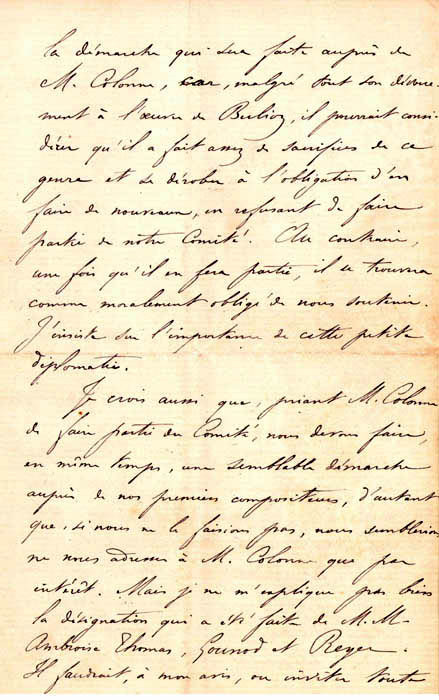 la démarche qui sera faite auprès de
M. Colonne, car, malgré tout son dévoue-
ment à l'œuvre de Berlioz, il pourrait consi-
dérer qu'il a fait assez de sacrifices de ce
genre et se dérober à l'obligation d'en
faire de nouveaux, en refusant de faire
partie de notre Comité. Au contraire,
une fois qu'il en fera partie, il se trouvera
comme moralement obligé de nous soutenir.
J'insiste sur l'importance de cette petite
diplomatie.
Je crois aussi que, priant M. Colonne
de faire partie du Comité, nous devons faire,
en même temps, une semblable démarche
auprès de nos premiers compositeurs, d'autant
que, si nous ne le faisions pas, nous semblerions
ne nous adresser à M. Colonne que par
intérêt. Mais je ne m'explique pas bien
la désignation qui a été faite de M.M.
Ambroise Thomas, Gounod et Reyer.
Il faudrait, à mon avis, ou inviter toute